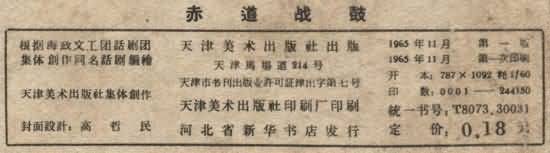 赤道战鼓
根据海政文工团话剧团
集体創作同名話剧編繪
天津美术出版社集体創作
封面設計：高哲民
天津美术出版社出版
天津馬場道214号
天津市书刊出版业許可証津出字第七号
天津美术出版社印刷厂印刷
河北省新华书店发行
1965年11月 第一版
1965年11月 第一次印刷
开本：787×1092 耗1/60
印数：0001——244150
統一书号：T8073.30031
定价：0.18元